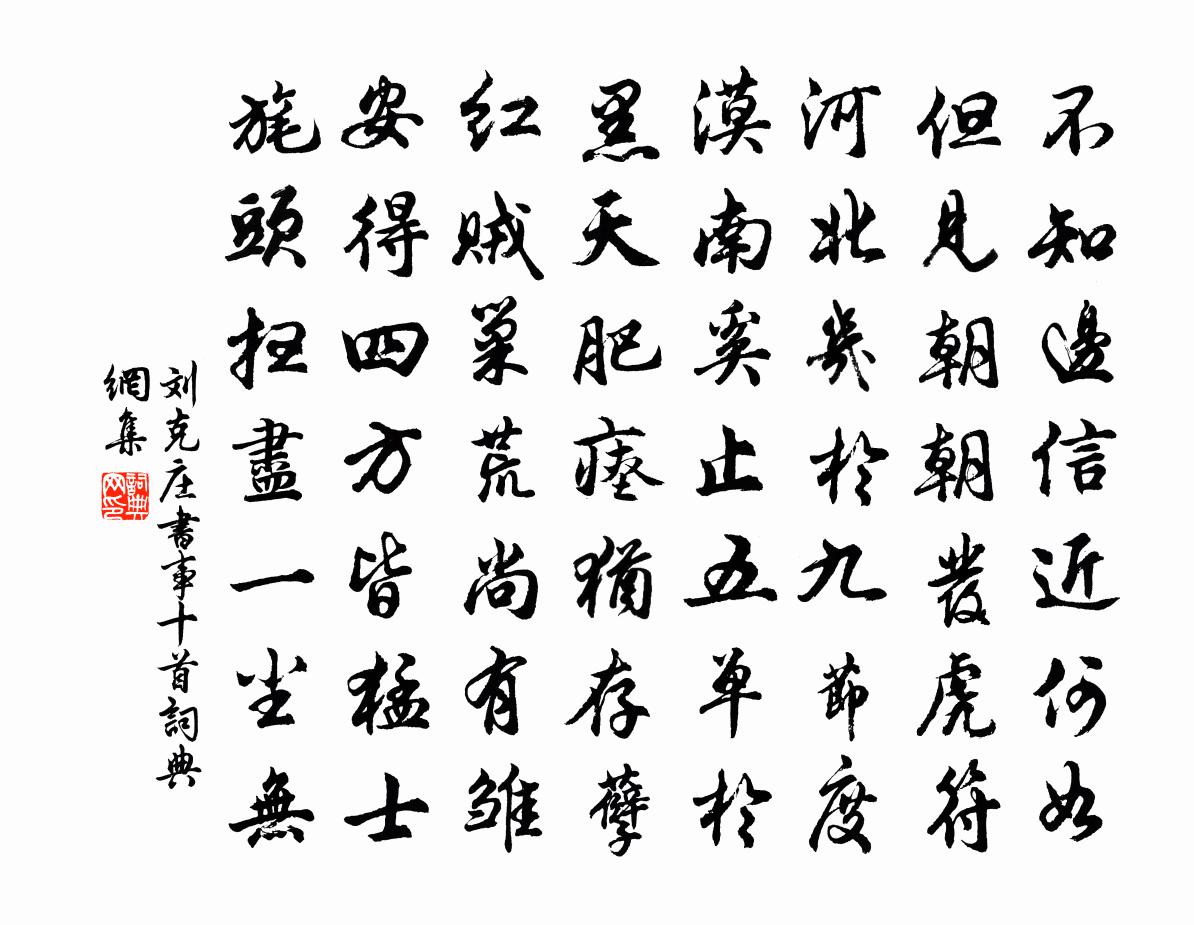 不知邊信近何如
但見朝朝發虎符
河北幾於九節度
漠南奚止五单於
黑天肥瘗猶存孽
红賊巢荒尚有雏
安得四方皆猛士
旄頭扫盡一尘無
刘克庄書事十首詞典
網集
詞典网印